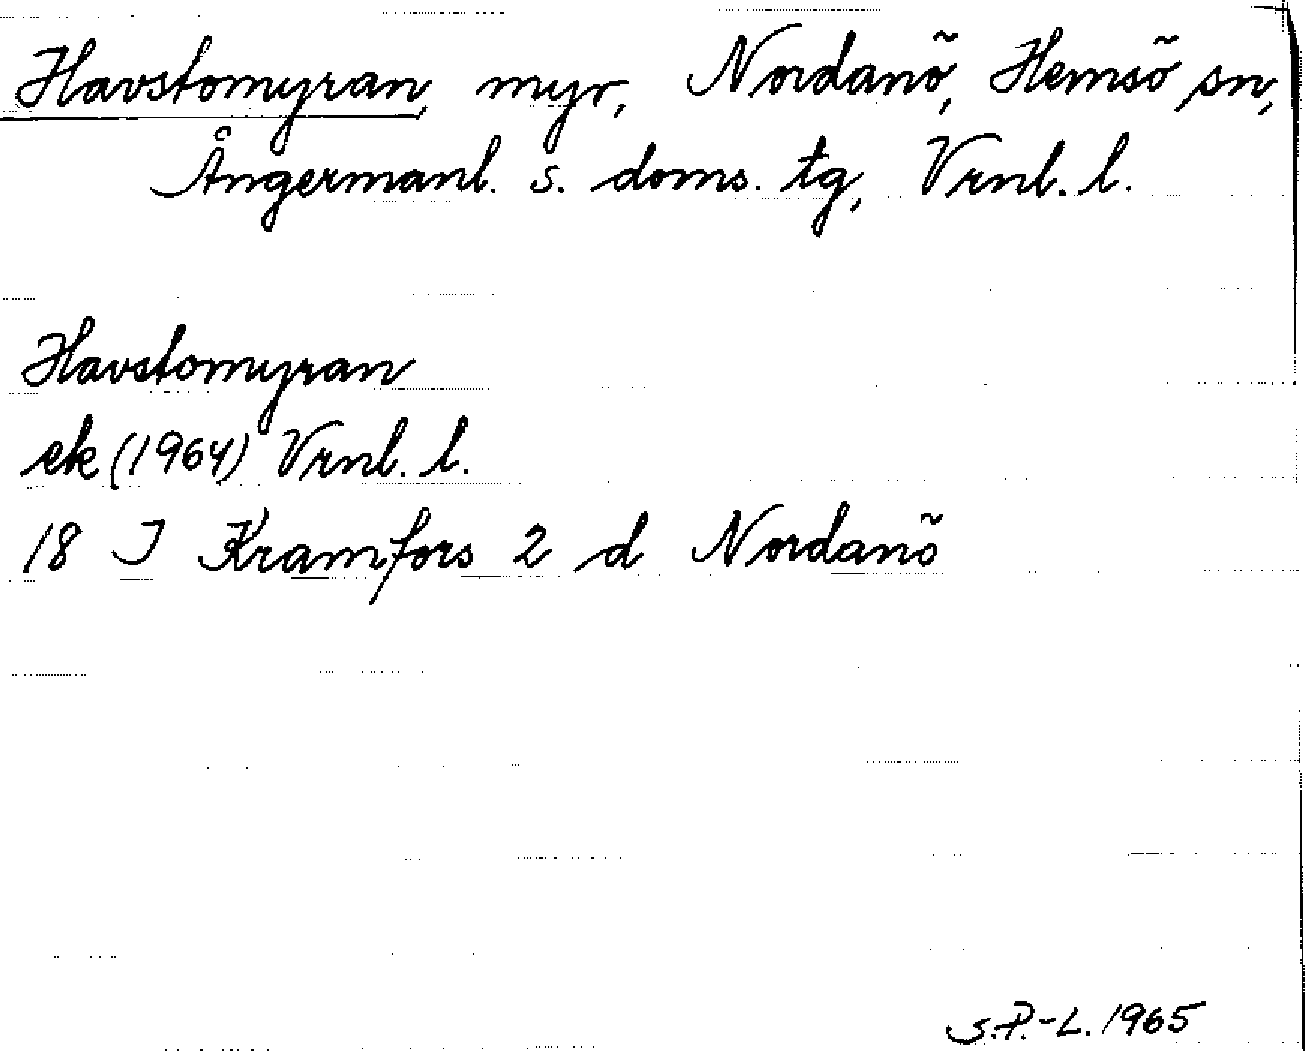 Havstomyran, myr, Nordanö, Hemsö sn,
Ångermanl. s. doms. tg, Vrnl. l.
Havstomyran
ek (1964) Vrnl. l.
18 I Kramfors 2 d Nordanö
S.P.-L. 1965